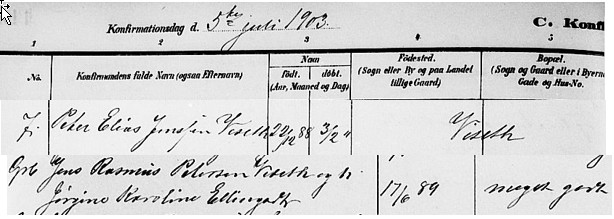 Konfirmationsdag d. 5te juli 1903. C. Konfi
1 2 3 4 5
No. Konfirmandens fulde Navn (ogsaa Efternavn) Naar født. døbt. (Aar, Maaned og Dag) Fødested. (Sogn eller By og paa Landet tillige Gaard) Bopæl. (Sogn og Gaard eller i Byerne Gade og Hus-No.
7. Peter Elias Jensen Viseth 22/12 88 3/2 " Viseth
Jens Rasmus Petersen Viseth og h.
Jörgine Karoline 17/6 89 meget godt